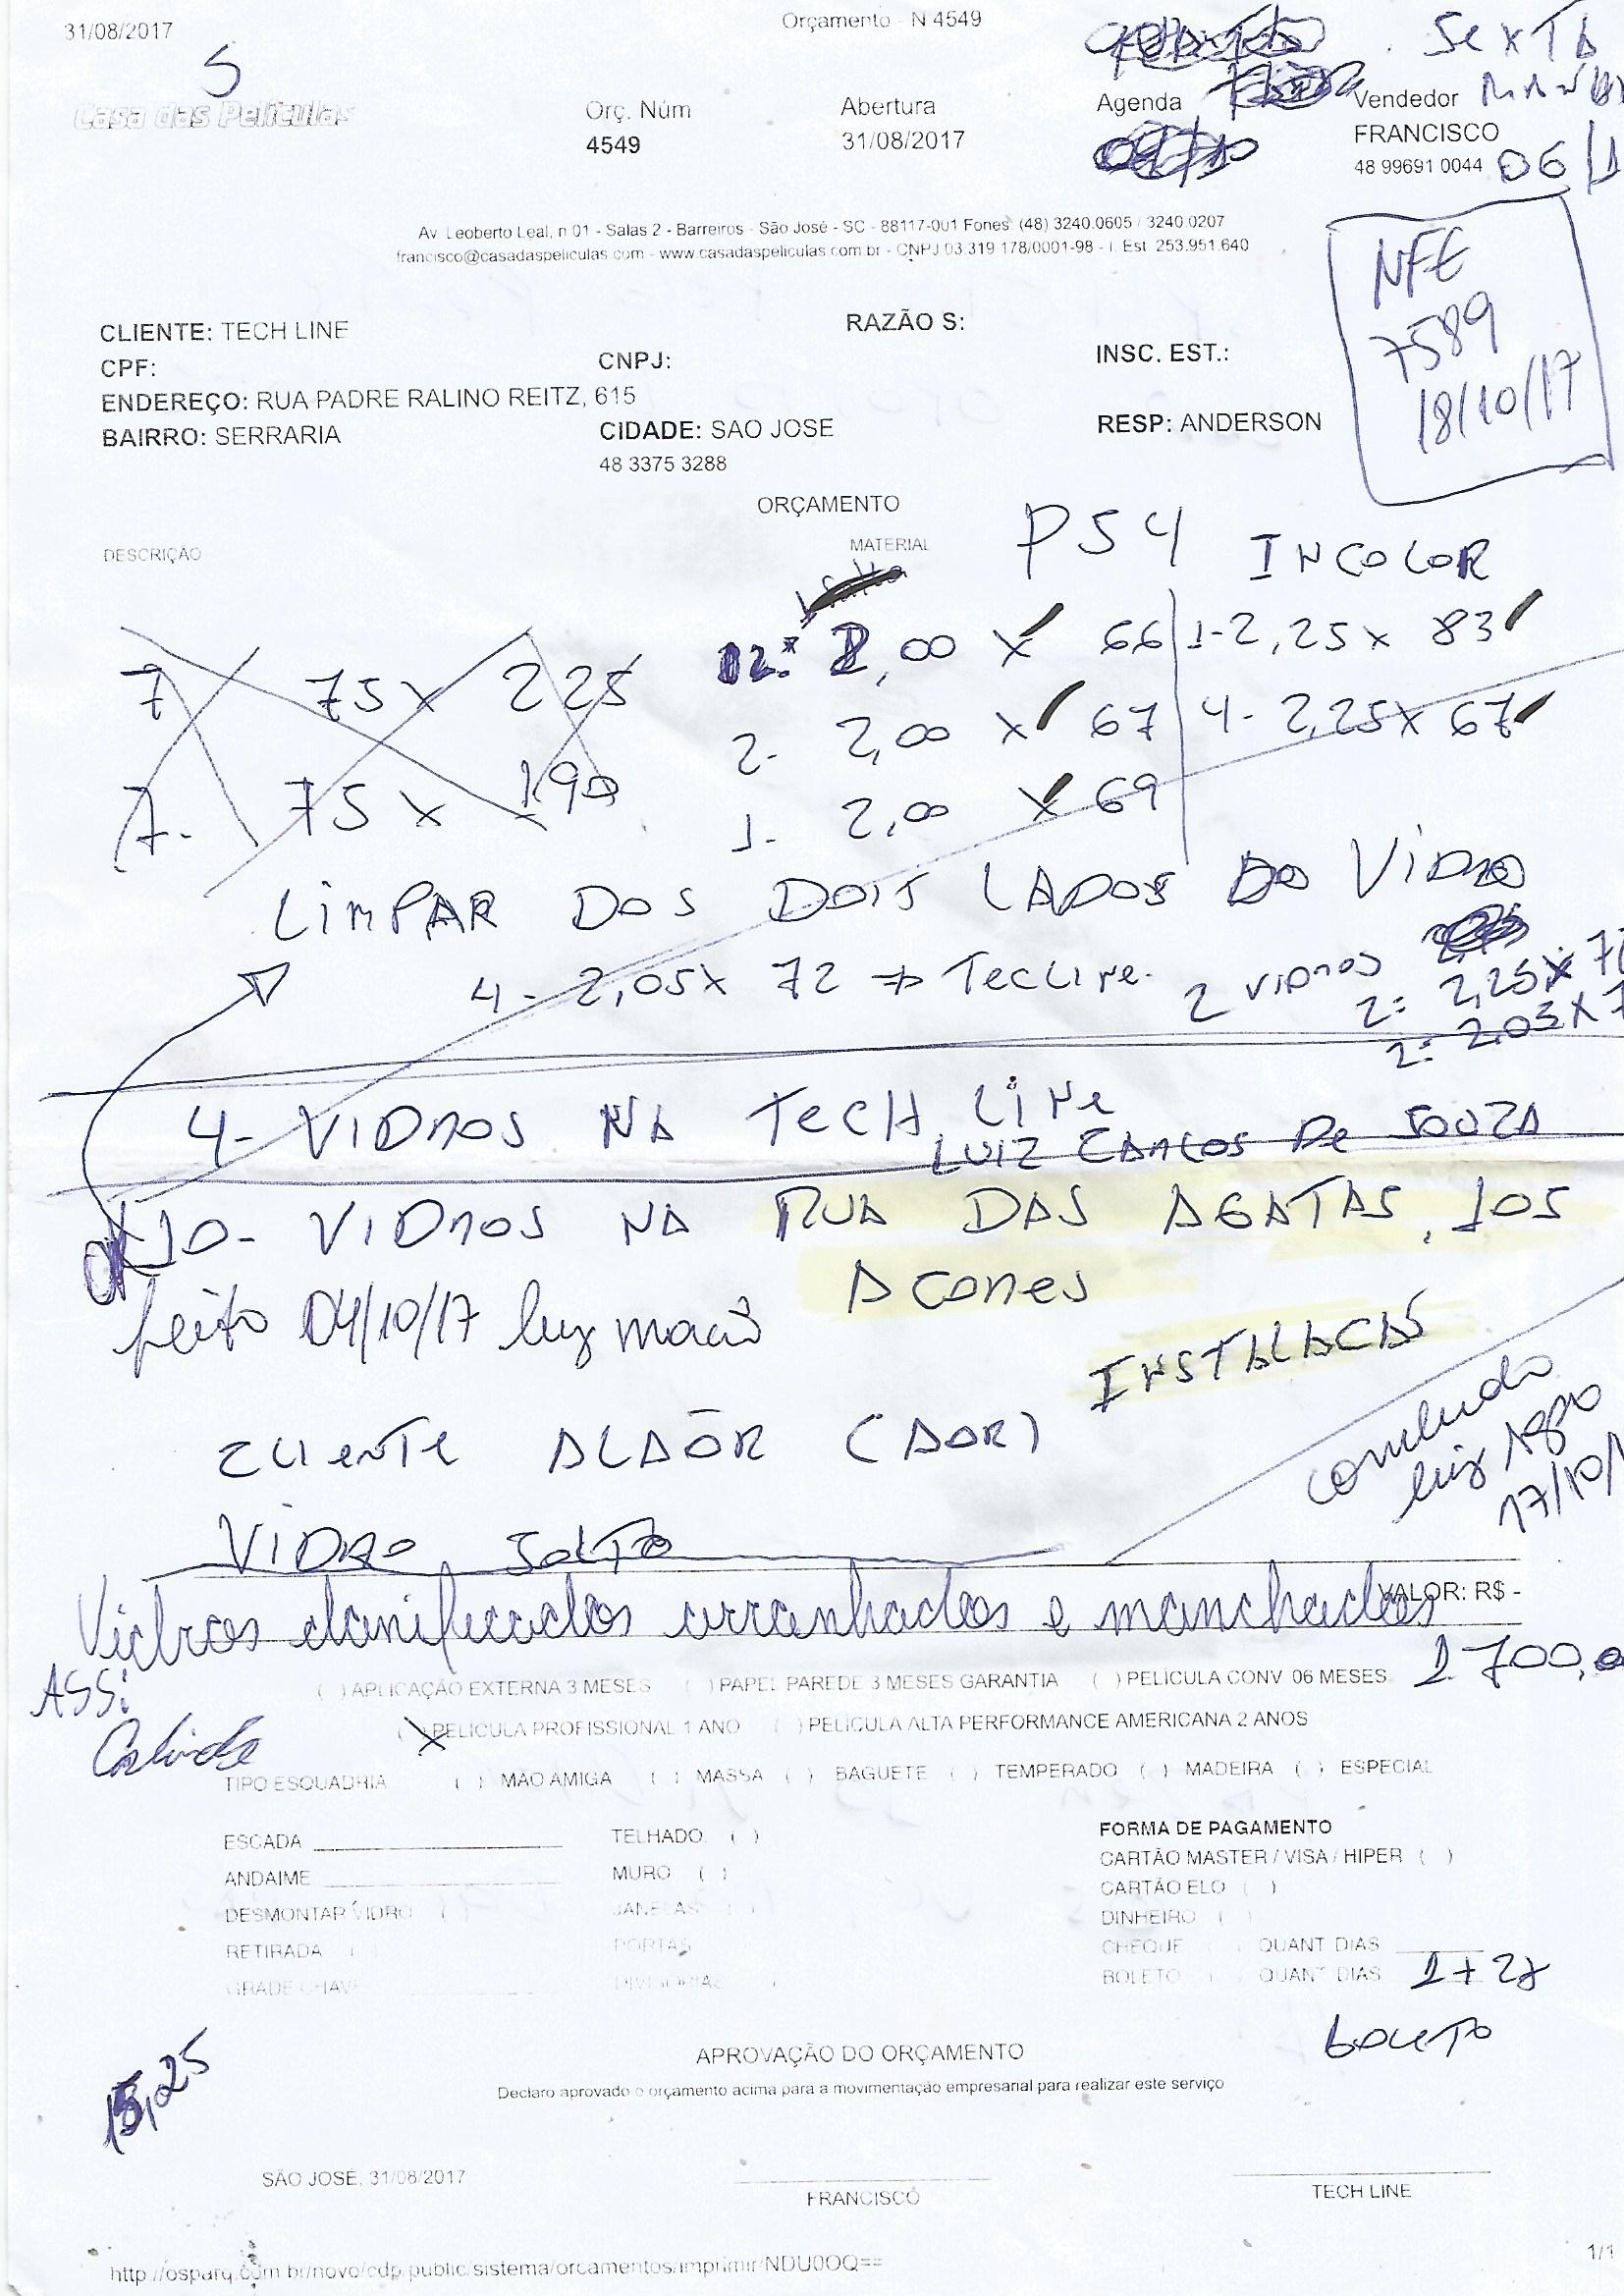 31/08/2017
Orçamento - N 4549
SEXTA
5
Casa das Películas
Orç. Núm
4549
Abertura
31/08/2017
Agenda
Vendedor
FRANCISCO
48 99691 0044
06/1
Av. Leoberto Leal, n 01 - Salas 2 - Barreiros - São José - SC - 88117-001 Fones: (48) 3240.0605 / 3240.0207
francisco@casadaspeliculas.com - www.casadaspeliculas.com.br - CNPJ 03.319.178/0001-98 - I. Est. 253.951.640
NFE
7589
18/10/17
CLIENTE: TECH LINE
RAZÃO S:
CPF:
CNPJ:
INSC. EST.:
ENDEREÇO: RUA PADRE RALINO REITZ, 615
BAIRRO: SERRARIA
CIDADE: SAO JOSE
RESP: ANDERSON
48 3375 3288
ORÇAMENTO
DESCRIÇÃO
MATERIAL
PS4 INCOLOR
7 75 x 225
7- 75 x 190
2,00 x 66 | 1- 2,25 x 83
2- 2,00 x 67 | 4- 2,25 x 67
1- 2,00 x 69
LIMPAR DOS DOIS LADOS DO VIDRO
4- 2,05 x 72 => TecLine. 2 VIDROS
2: 2,25 x 7
2: 2,03 x 7
4- VIDROS NA TECH LINE
LUIZ CARLOS DE SOUZA
OK 10- VIDROS NA RUA DAS AGATAS, 105
ACORES
feito 04/10/17 luz
INSTALACAS
CLIENTE ALAOR (AOR)
concluido
luiz
17/10/1
VIDRO SOLTO
VALOR: R$ -
Vidros danificados arranhados e manchados
1700,0
ASS:
( ) APLICAÇÃO EXTERNA 3 MESES ( ) PAPEL PAREDE 3 MESES GARANTIA ( ) PELÍCULA CONV 06 MESES
(X) PELÍCULA PROFISSIONAL 1 ANO ( ) PELÍCULA ALTA PERFORMANCE AMERICANA 2 ANOS
TIPO ESQUADRIA ( ) MÃO AMIGA ( ) MASSA ( ) BAGUETE ( ) TEMPERADO ( ) MADEIRA ( ) ESPECIAL
ESCADA
TELHADO ( )
FORMA DE PAGAMENTO
CARTÃO MASTER / VISA / HIPER ( )
ANDAIME
MURO ( )
CARTÃO ELO ( )
DESMONTAR VIDRO ( )
JANELAS ( )
DINHEIRO ( )
RETIRADA ( )
PORTAS
CHEQUE ( ) QUANT DIAS
GRADE CHAVE
DIVISORIAS
BOLETO ( ) QUANT DIAS 1 + 28
BOLETO
15,25
APROVAÇÃO DO ORÇAMENTO
Declaro aprovado o orçamento acima para a movimentação empresarial para realizar este serviço
SÃO JOSÉ, 31/08/2017
FRANCISCO
TECH LINE
http://osparq.com.br/novo/cdp/public/sistema/orcamentos/imprimir/NDU0OQ==
1/1